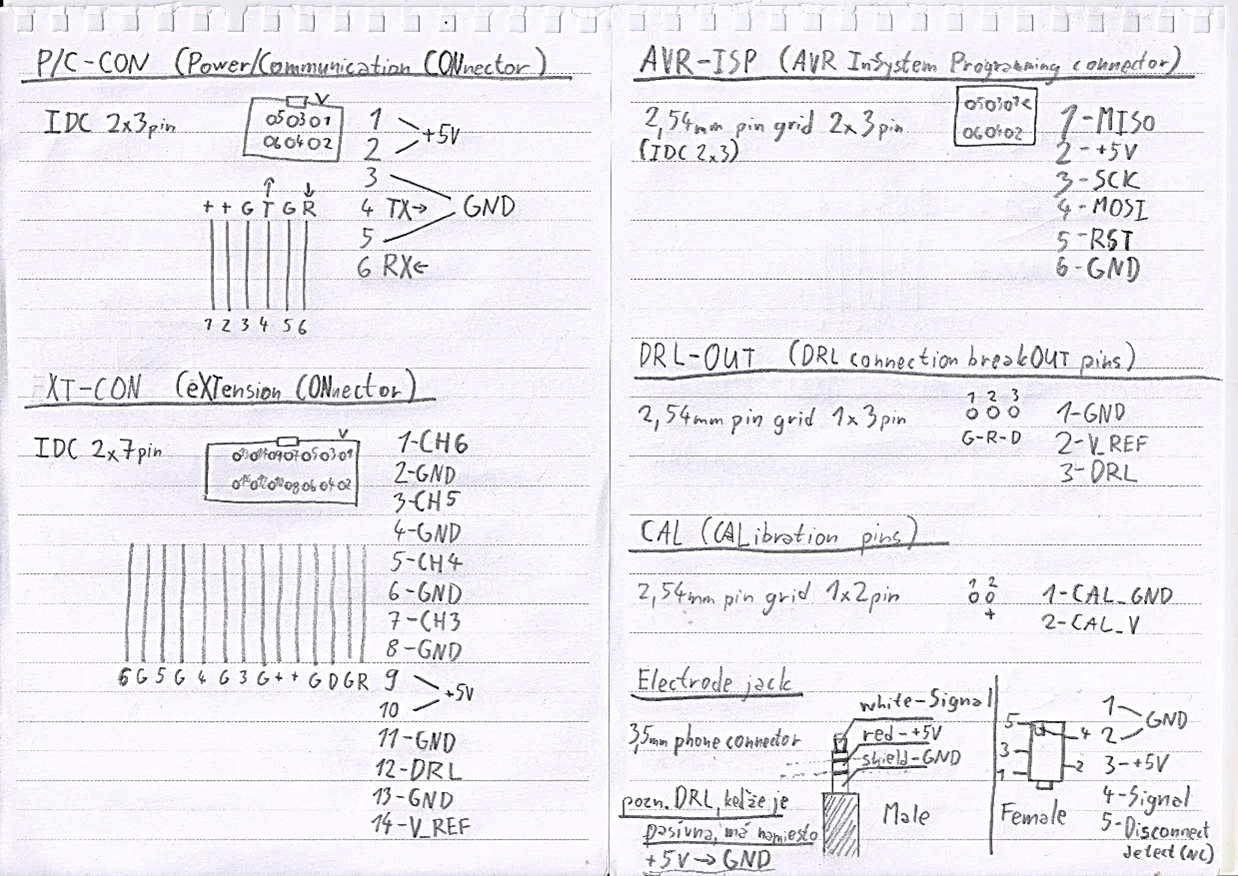 P/C-CON (Power/Communication CONnector)
IDC 2x3pin
05 03 01
06 04 02
1
2
+5V
3
4 TX→
5
GND
6 RX←
↑ ↓
+ + G T G R
1 2 3 4 5 6
XT-CON (eXTension CONnector)
IDC 2x7pin
013 011 09 07 05 03 01
014 012 010 08 06 04 02
1-CH6
2-GND
3-CH5
4-GND
5-CH4
6-GND
7-CH3
8-GND
9
10
+5V
11-GND
12-DRL
13-GND
14-V_REF
6 G 5 G 4 G 3 G + + G D G R
AVR-ISP (AVR InSystem Programming connector)
2,54mm pin grid 2x3pin
(IDC 2x3)
05 03 01<
06 04 02
1-MISO
2-+5V
3-SCK
4-MOSI
5-RST
6-GND
DRL-OUT (DRL connection breakOUT pins)
2,54mm pin grid 1x3pin
1 2 3
G-R-D
1-GND
2-V_REF
3-DRL
CAL (CALibration pins)
2,54mm pin grid 1x2pin
1 2
+
1-CAL_GND
2-CAL_V
Electrode jack
3,5mm phone connector
white-Signal
red-+5V
shield-GND
Male
pozn. DRL, keďže je
pasívna, má namiesto
+5V→GND
5
4
3
2
1
Female
1
2
GND
3-+5V
4-Signal
5-Disconnect
detect (NC)